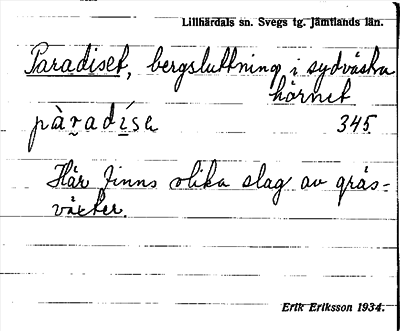 Lillhärdals sn. Svegs tg. Jämtlands län.
Paradiset, bergsluttning i sydvästra
hörnet
pàradísɛ 345
Här finns olika slag av gräs-
växter.
Erik Eriksson 1934.